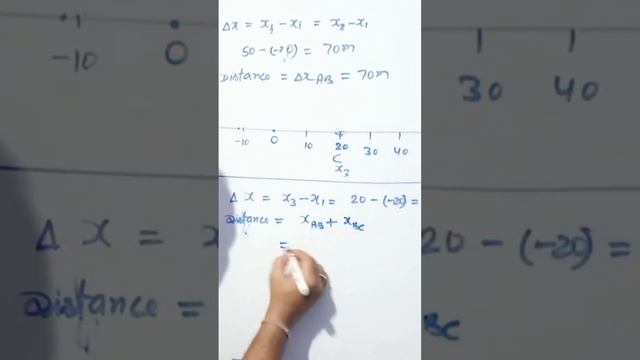 Δx = x_f − x_i = x_2 − x_1
50 − (−20) = 70m
Distance = Δx_AB = 70m
-10 0 10 20 30 40
C
x_3
Δ x = x_3 − x_1 = 20 − (−20) =
Distance = x_AB + x_BC
=
-10 0
30 40
Δ x =
20 − (−20) =
Distance =
BC